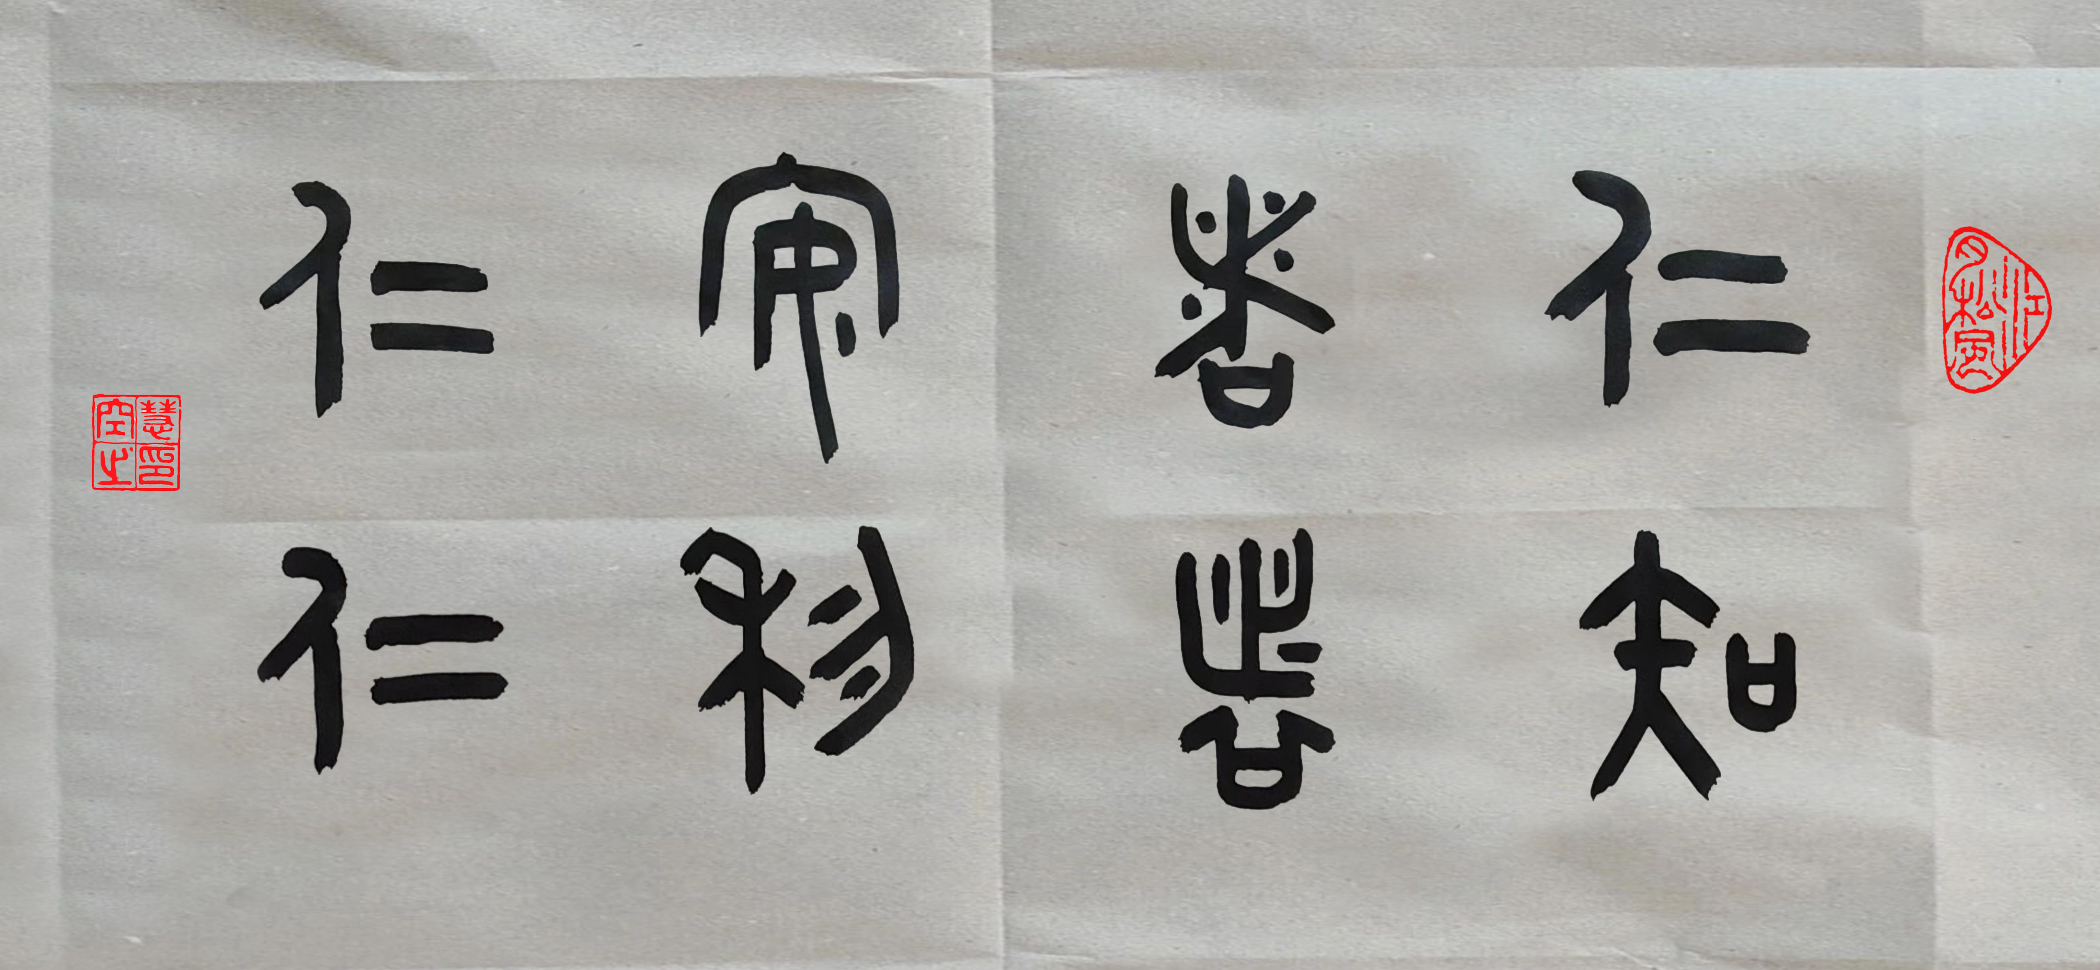 仁者安仁
知者利仁
慧空之印